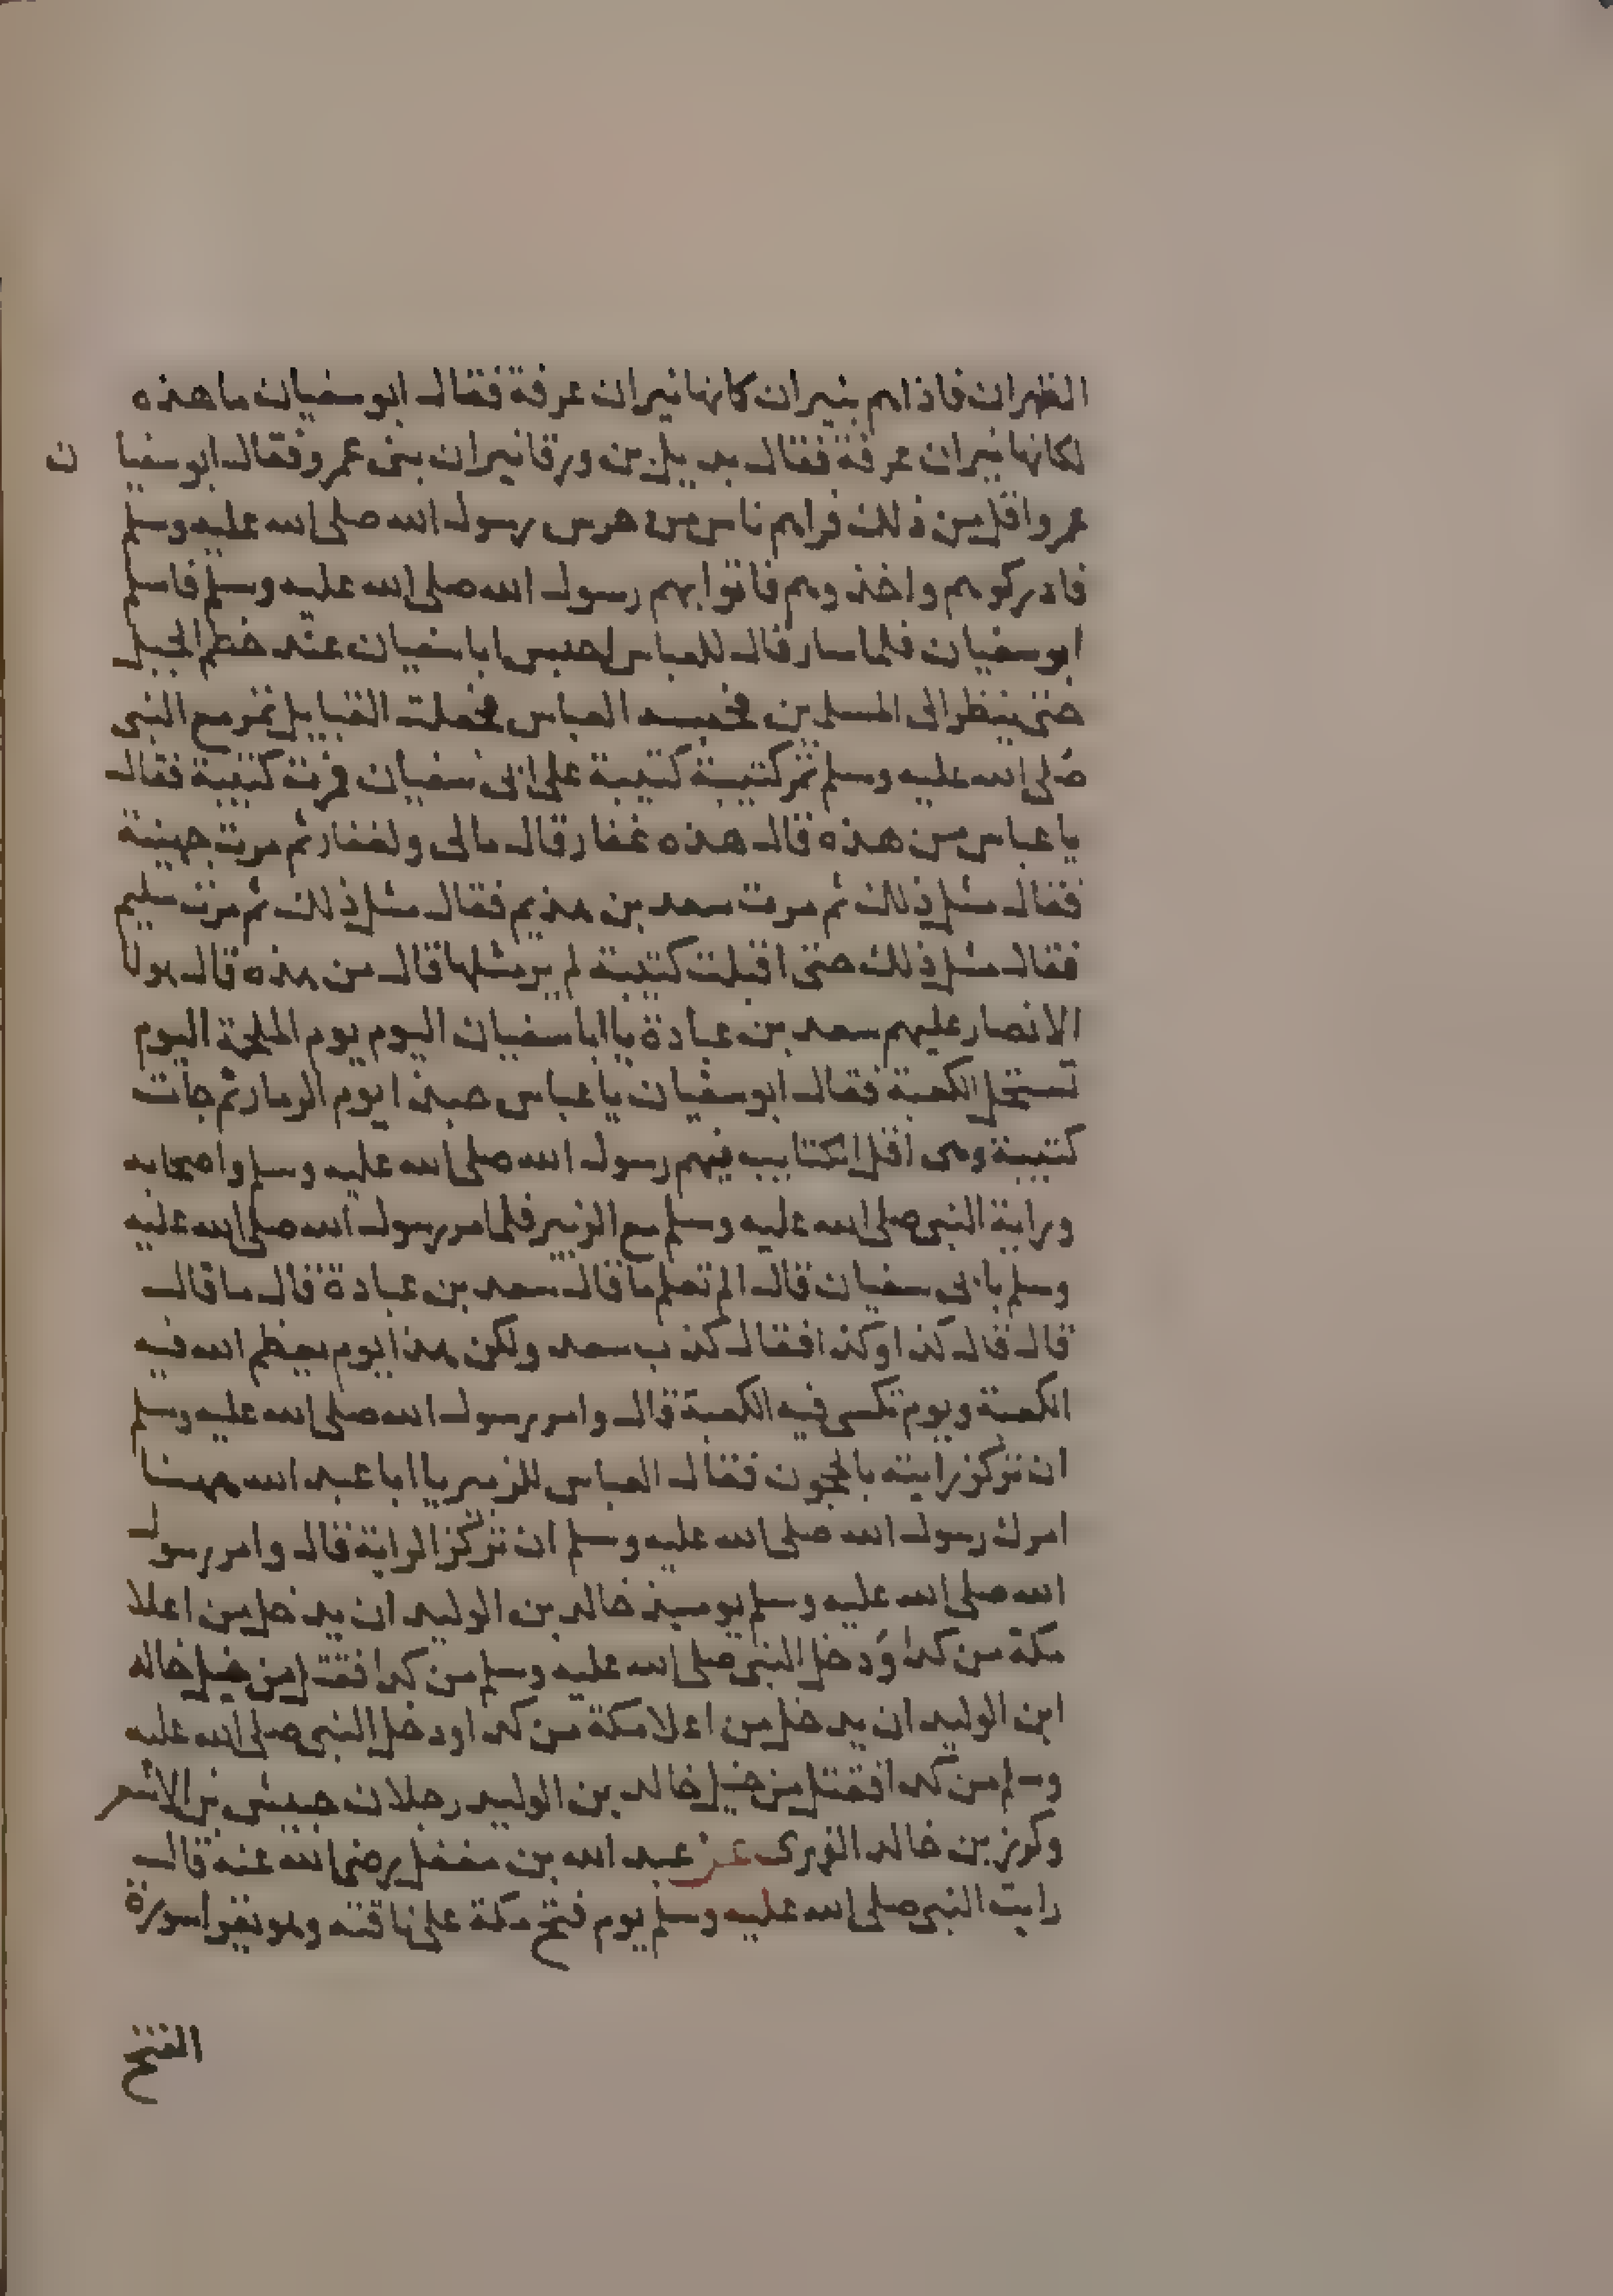 الظهران فاذا هم بنيران كانها نيران عرفة فقال ابو سفيان ما هذه
لكانها نيران عرفة فقال بديل بن ورقا نيران بنى عمرو فقال ابو سفيان
عمرو اقل من ذلك فراهم ناس من حرس رسول الله صلى الله عليه وسلم
فادركوهم واخذوهم فاتوا بهم رسول الله صلى الله عليه وسلم فاسلم
ابو سفيان فلما سار قال للعباس احبس ابا سفيان عند خطم الجبل
حتى ينظر الى المسلمين فحبسه العباس فجعلت القبايل تمر مع النبى
صلى الله عليه وسلم تمر كتيبة كتيبة على ابى سفيان فمرت كتيبة فقال
يا عباس من هذه قال هذه غفار قال مالى ولغفار ثم مرت جهينة
فقال مثل ذلك ثم مرت سعد بن هذيم فقال مثل ذلك ثم مرت سليم
فقال مثل ذلك حتى اقبلت كتيبة لم ير مثلها قال من هذه قال هولا
الانصار عليهم سعد بن عبادة يا ابا سفيان اليوم يوم الملحمة اليوم
تستحل الكعبة فقال ابو سفيان يا عباس حبذا يوم الرمار ثم جات
كتيبة وهى اقل الكتايب فيهم رسول الله صلى الله عليه وسلم واصحابه
وراية النبى صلى الله عليه وسلم مع الزبير فلما مر رسول الله صلى الله عليه
وسلم بابى سفيان قال الم تعلم ما قال سعد بن عبادة قال ما قال
قال قال كذا وكذا فقال كذب سعد ولكن هذا يوم يعظم الله فيه
الكعبة ويوم تكسى فيه الكعبة قال وامر رسول الله صلى الله عليه وسلم
ان تركز رايته بالحجون فقال العباس للزبير يا ابا عبد الله ههنا
امرك رسول الله صلى الله عليه وسلم ان تركز الراية قال وامر رسول
الله صلى الله عليه وسلم يوميذ خالد بن الوليد ان يدخل من اعلا
مكة من كدا ودخل النبى صلى الله عليه وسلم من كدا فقتل من خيل خالد
ابن الوليد ان يدخل من اعلا مكة من كدا ودخل النبى صلى الله عليه
وسلم من كدا فقتل من خيل خالد بن الوليد رجلان حبيش بن الاشعر
وكرز بن خالد الفهرى عن عبد الله بن مغفل رضى الله عنه قال
رايت النبى صلى الله عليه وسلم يوم فتح مكة على ناقته وهو يقرا سورة
الفتح